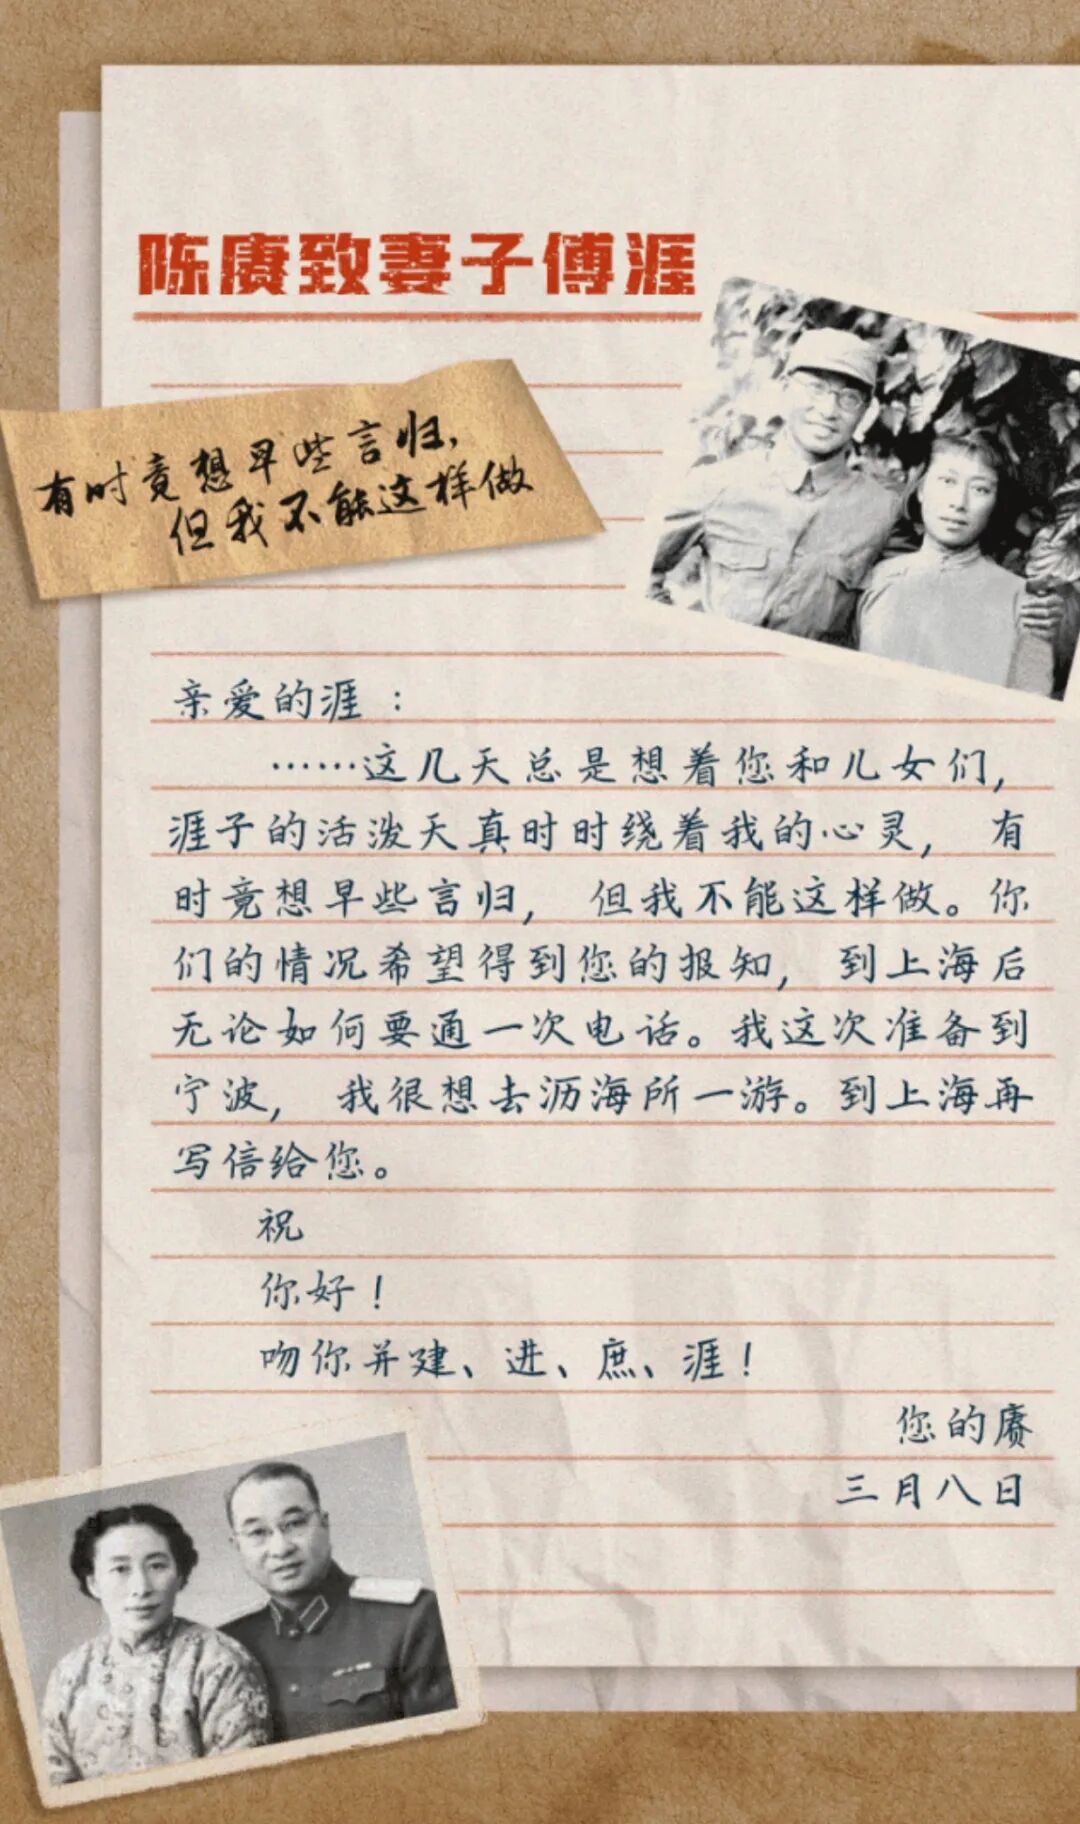 陈赓致妻子傅涯
有时竟想早些言归，
但我不能这样做
亲爱的涯：
……这几天总是想着您和儿女们，
涯子的活泼天真时时绕着我的心灵，有
时竟想早些言归，但我不能这样做。你
们的情况希望得到您的报知，到上海后
无论如何要通一次电话。我这次准备到
宁波，我很想去沥海所一游。到上海再
写信给您。
祝
你好！
吻你并建、进、庶、涯！
您的赓
三月八日